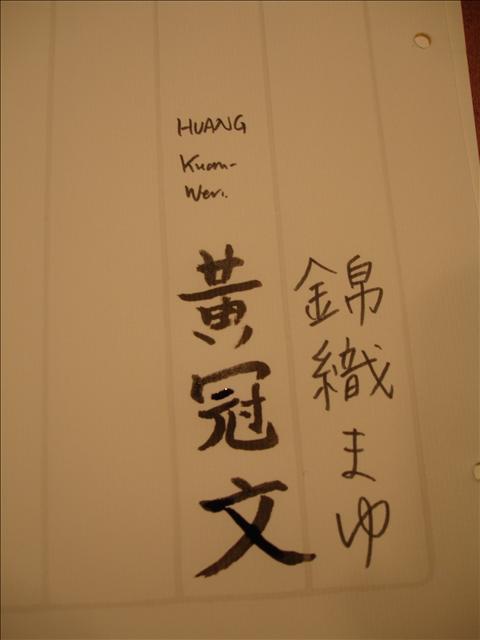 錦織まゆ
HUANG
Kuan-
Wen.
黃冠文